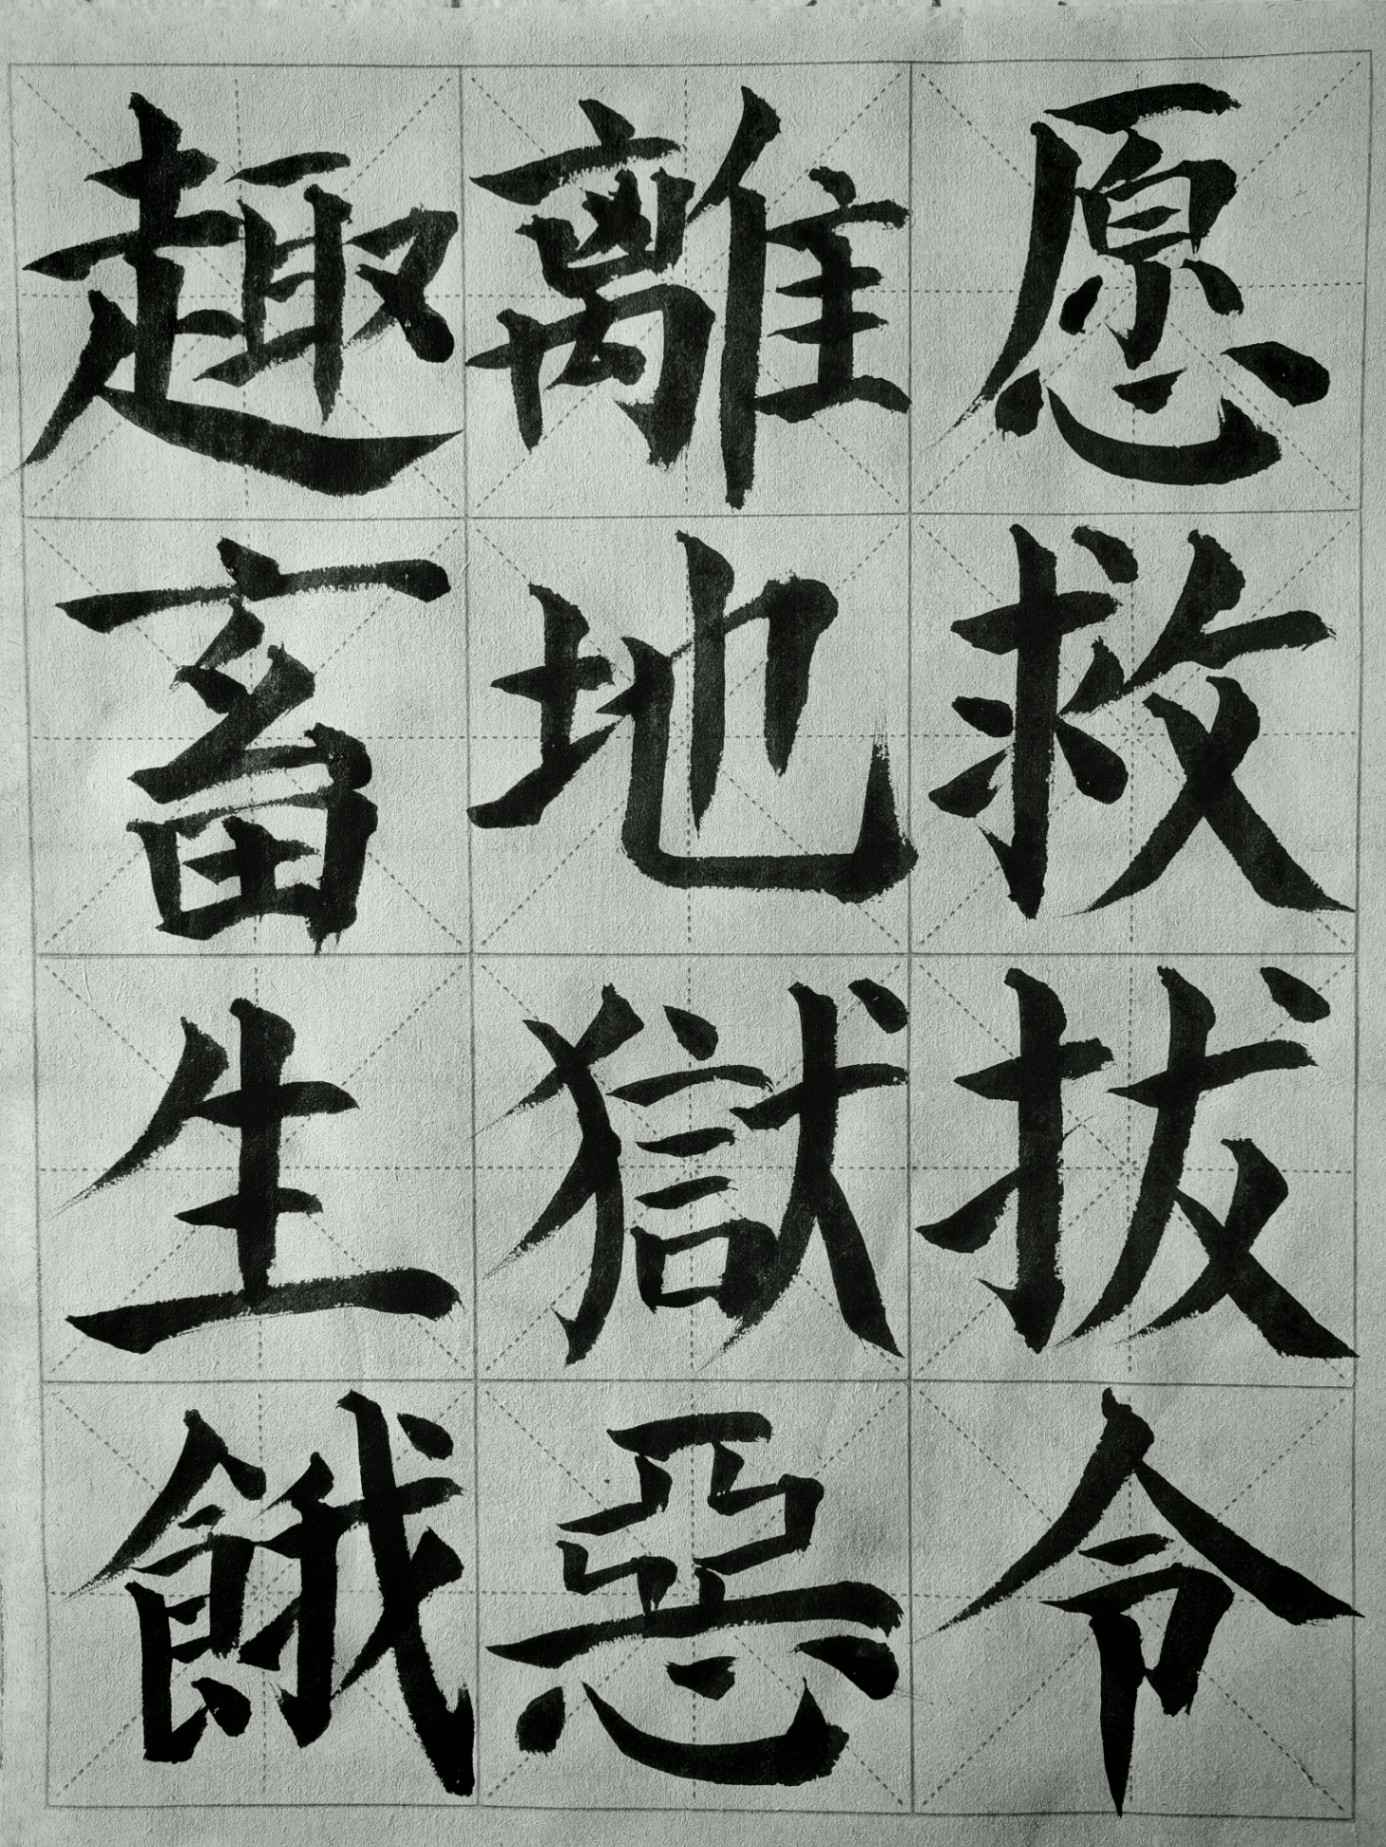 愿救拔令
離地獄惡
趣畜生餓